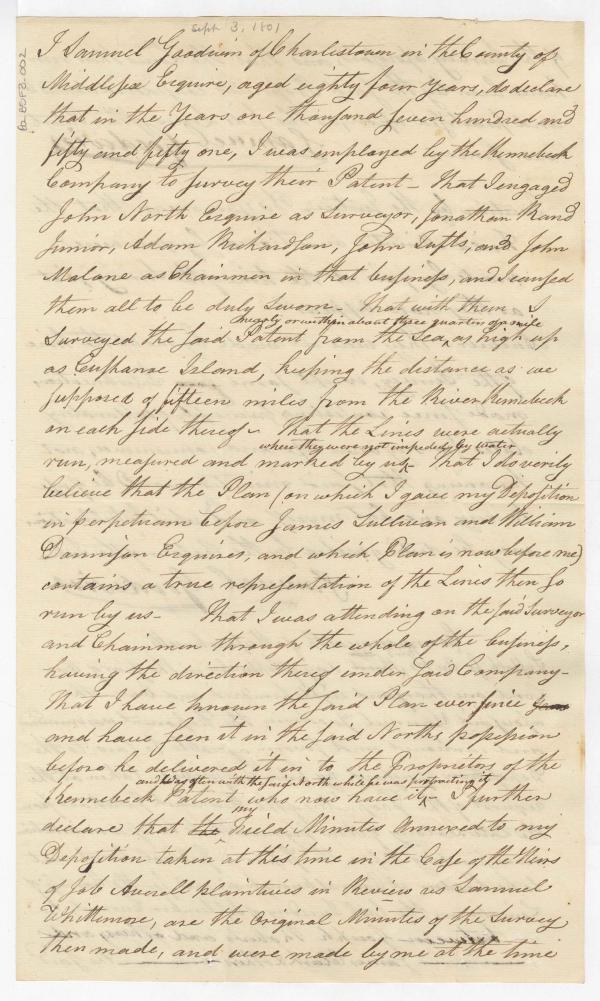 Sept 3, 1801
I Samuel Goodwin of Charlestown in the County of
Middlesex Esquire, aged eighty four Years, do declare
that in the Years one thousand seven hundred and
fifty and fifty one, I was employed by the Kennebeck
Company to survey their Patent - That I engaged
John North Esquire as Surveyor, Jonathan Rand
Junior, Adam Richardson, John Tufts, and John
Malone as Chainmen in that business, and I caused
them all to be duly sworn - That with them I
nearly or within about three quarters of a mile
surveyed the said Patent from the Sea, as high up
as Cuphanae Island, keeping the distance as we
supposed of fifteen miles from the River Kennebeck
on each side thereof - That the Lines were actually
where they were not impeded by water
run, measured and marked by us - That I do verily
believe that the Plan (on which I gave my Deposition
in perpetuam before James Sullivan and William
Dannison Esquires, and which Plan is now before me)
contains a true representation of the Lines then so
run by us - That I was attending on the said Surveyor
and Chainmen through the whole of the business,
having the direction thereof under said Company -
That I have known the said Plan ever since
and have seen it in the said Norths possession
before he delivered it in to the Proprietors of the
and was often with the said North while he was protracting it
Kennebeck Patent, who now have it - I further
my
declare that the Field Minutes annexed to my
Deposition taken at this time in the Case of the Heirs
of Job Averell plaintives in Review vs Samuel
Whittemore, are the Original Minutes of the Survey
then made, and were made by me at the time